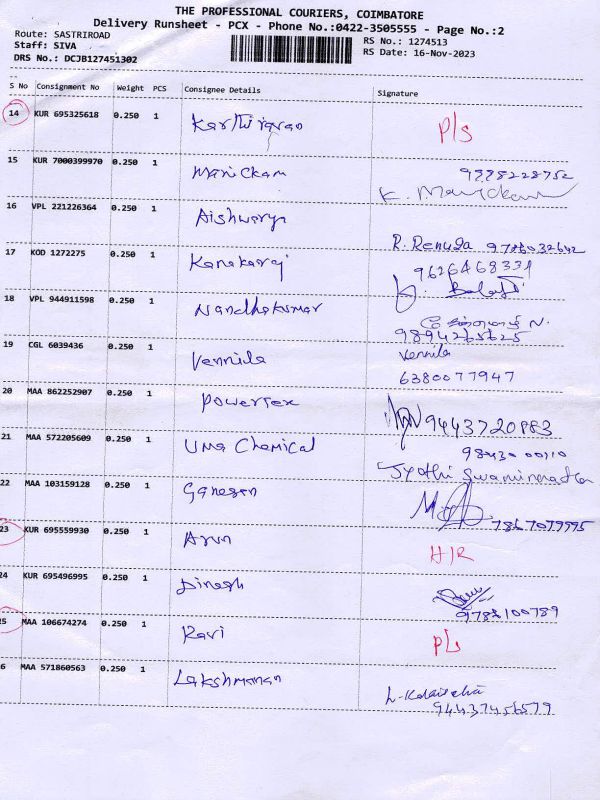 THE PROFESSIONAL COURIERS, COIMBATORE
Delivery Runsheet - PCX - Phone No.:0422-3505555 - Page No.:2
Route: SASTRIROAD
RS No.: 1274513
Staff: SIVA
RS Date: 16-Nov-2023
DRS No.: DCJB127451302
S No Consignment No Weight PCS Consignee Details Signature
14 KUR 695325618 0.250 1 Karthiravan P/s
15 KUR 7000399970 0.250 1 Manickam 9888228752
K. Manickam
16 VPL 221226364 0.250 1 Aishwarya
R. Renuga 9786032642
17 KOD 1272275 0.250 1 Kanakaraj 9626468334
18 VPL 944911598 0.250 1 Nandhakumar
N.
9894265625
19 CGL 6039436 0.250 1 Vennila Vennila
6380077947
20 MAA 862252907 0.250 1 Powertex
9443720883
21 MAA 572205609 0.250 1 Uma Chemical
Jyothi Swaminatha
22 MAA 103159128 0.250 1 Ganesan
7867079995
23 KUR 695559930 0.250 1 Arun H/R
24 KUR 695496995 0.250 1 Dinesh
9788100789
25 MAA 106674274 0.250 1 Ravi P/s
6 MAA 571860563 0.250 1 Lakshmanan
94437456579